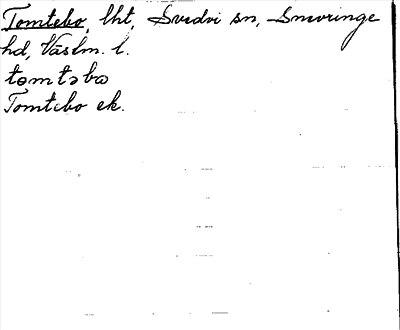 Tomtebo, lht, Svedvi sn, Snevringe
hd, Västm. l.
tomtəbω
Tomtebo ek.